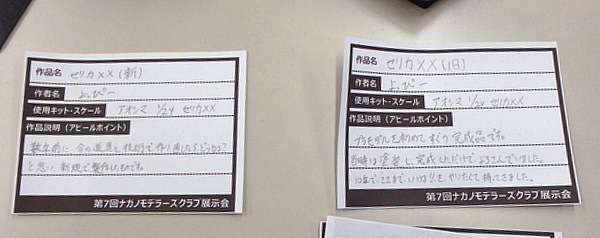 作品名 セリカXX(新)
作者名 よっぴー
使用キット・スケール アオシマ 1/24 セリカXX
作品説明(アピールポイント)
数年前に、今の道具と技術で作り直したらどうなる?
と思い 新規で製作したものです。
第7回ナガノモデラーズクラブ展示会
作品名 セリカXX(旧)
作者名 よっぴー
使用キット・スケール アオシマ 1/24 セリカXX
作品説明(アピールポイント)
プラモデルを初めてすぐの完成品です。
当時は塗装し、完成しただけで、よろこんでいました。
10年で、ここまで、を、やりたくて持ってきました。
第7回ナガノモデラーズクラブ展示会